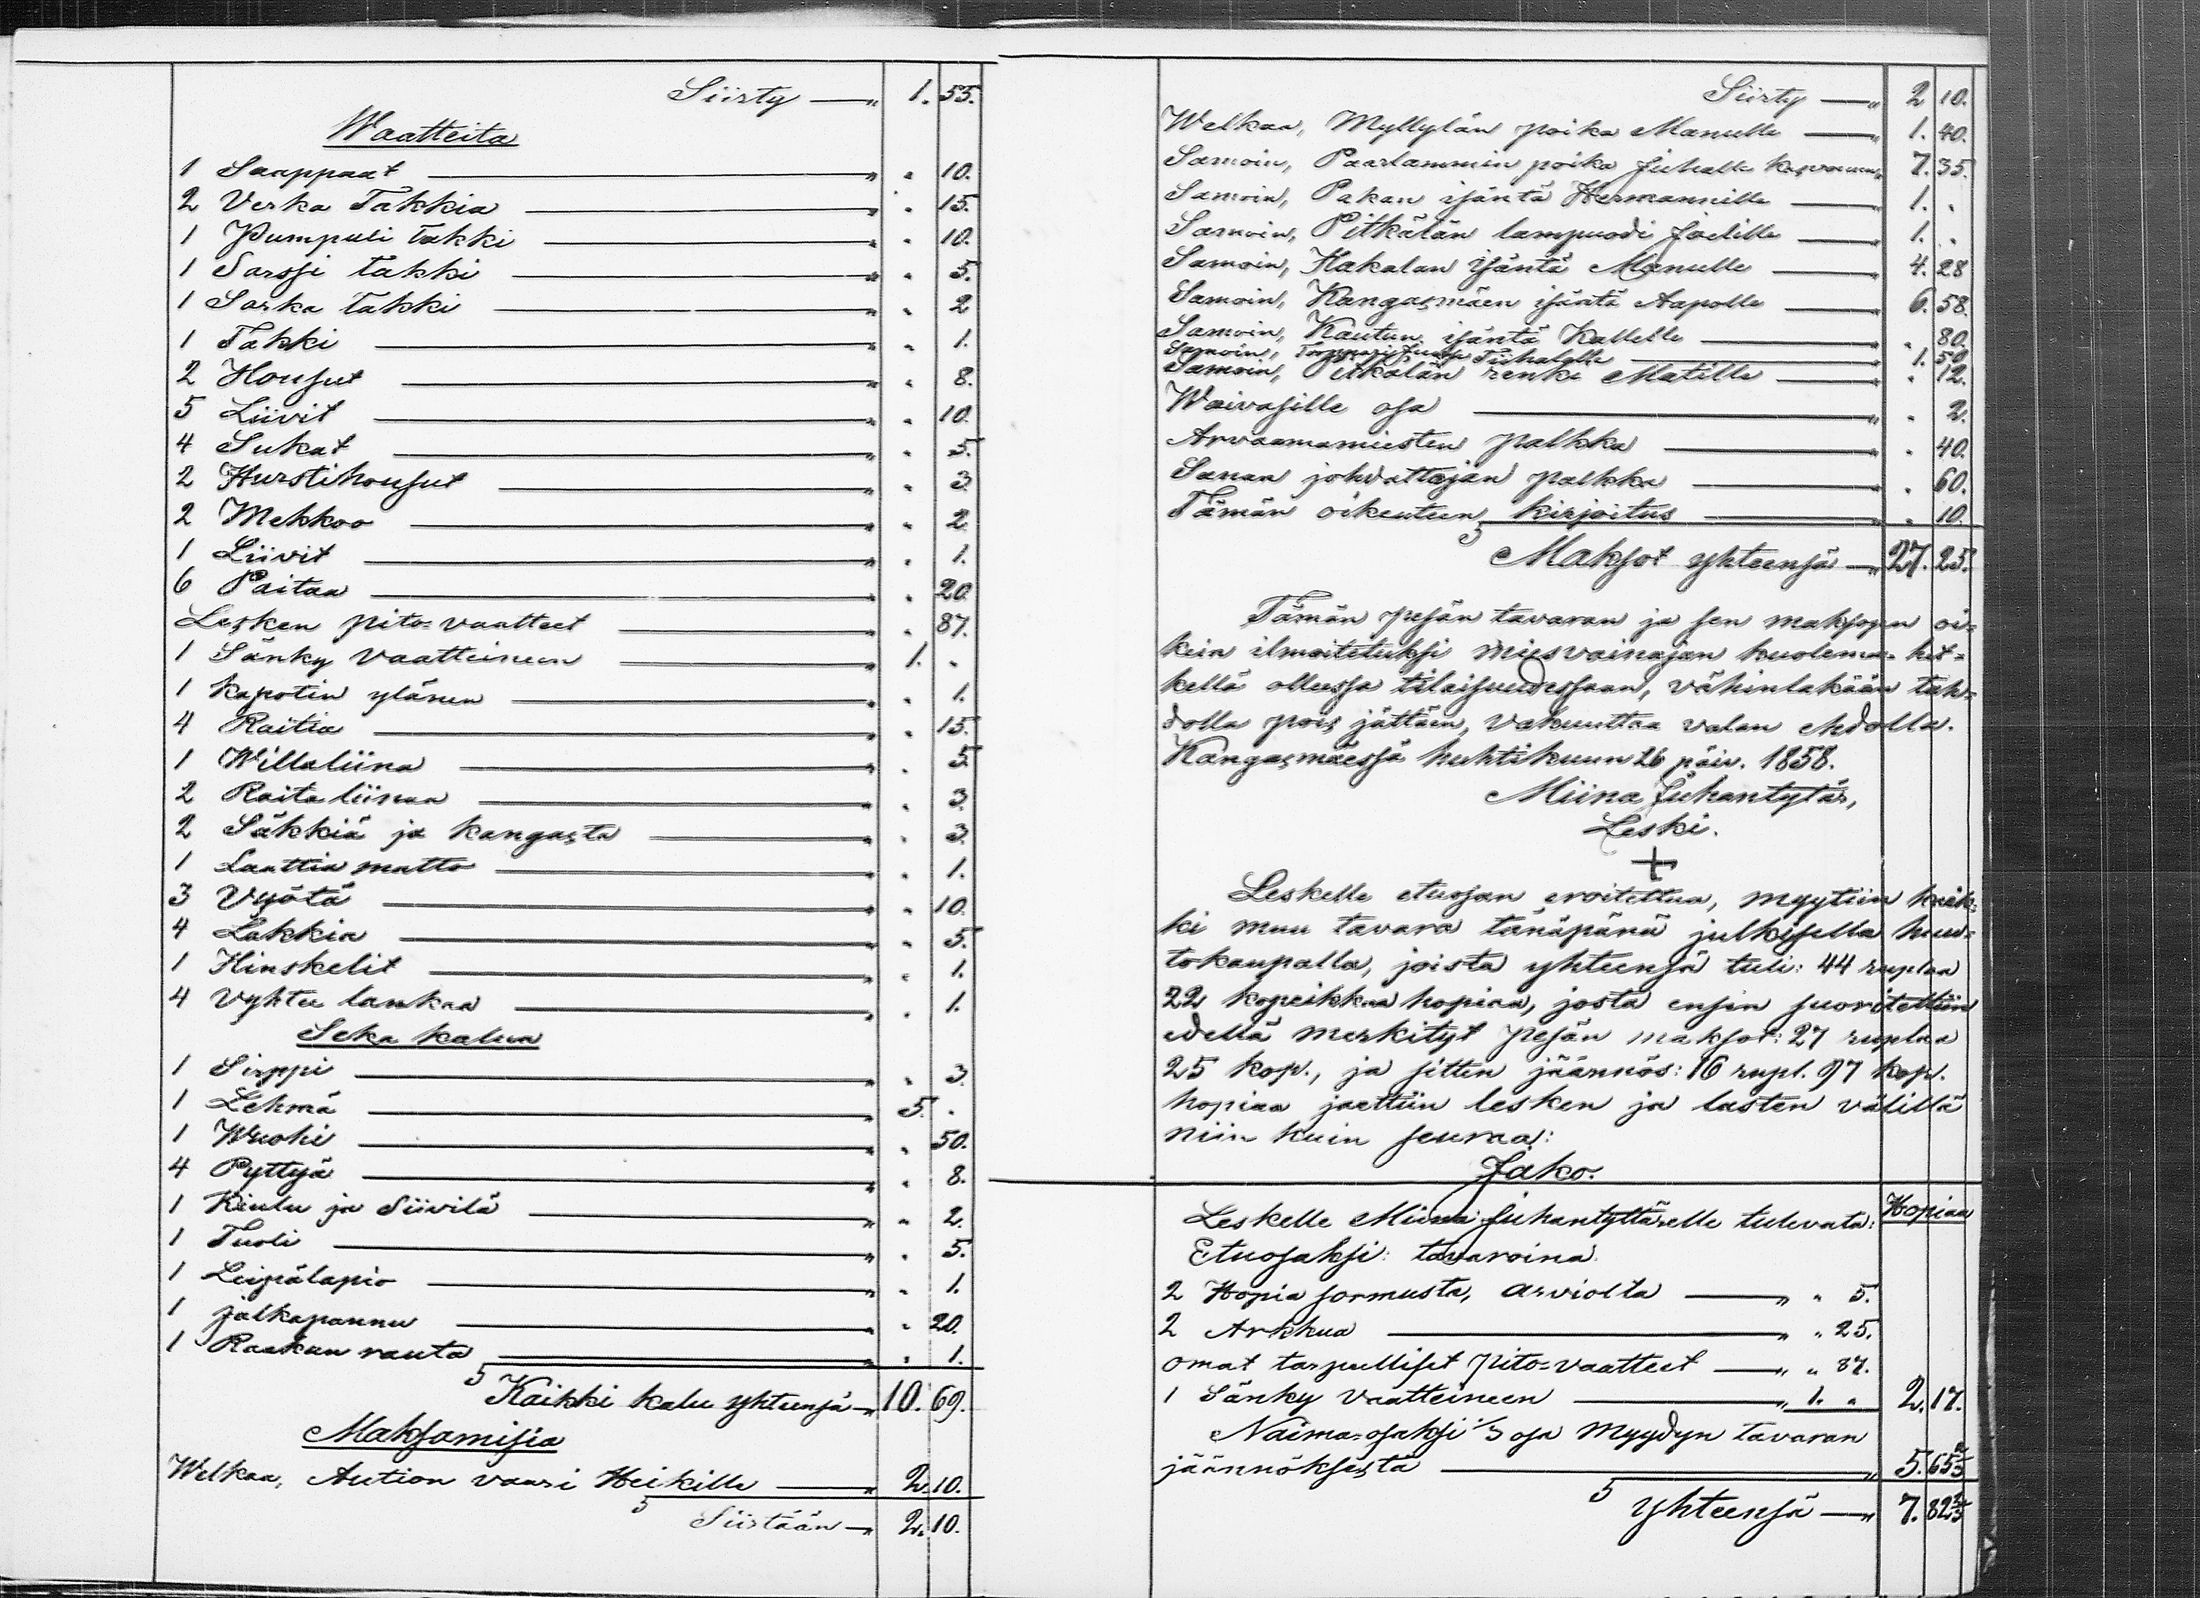 Siirty — „ 1. 55.
Waatteita
1 Saappaat — „ „ 10.
2 Verka Takkia — „ „ 15.
1 Pumpuli takki — „ „ 10.
1 Sarssi takki — „ „ 5.
1 Sarka takki — „ „ 2
1 Takki — „ „ 1.
2 Housut — „ „ 8.
5 Liivit — „ „ 10.
4 Sukat — „ „ 5.
2 Hurstihousut — „ „ 3.
2 Mekkoo — „ „ 2
1 Liivit — „ „ 1.
6 Paitaa — „ „ 20.
Lesken pito-vaatteet — „ „ 87.
1 Sänky vaatteineen — „ 1. „
1 kapotin ylänen — „ „ 1.
4 Raitia — „ „ 15.
1 Willaliina — „ „ 5.
2 Raitaliinaa — „ „ 3.
2 Säkkiä ja kangasta — „ „ 3.
1 Laattia matto — „ „ 1.
3 Vyötä — „ „ 10.
4 Lakkia — „ „ 5.
1 Hinskelit — „ „ 1.
4 Vyhtee lankaa — „ „ 1.
Seka kalua
1 Sirppi — „ „ 3.
1 Lehmä — „ 5. „
1 Wuohi — „ „ 50.
4 Pyttyä — „ „ 8.
1 Kiulu ja Siivilä — „ „ 2.
1 Tuoli — „ „ 5.
1 Leipälapio — „ „ 1.
1 jalkapannu — „ „ 20.
1 Raakun rauta — „ „ 1.
Kaikki kalu yhteensä — „ 10. 69.
Maksamisia
Welkaa, Aution vaari Heikille — „ 2. 10.
Siirtään — „ 2. 10.
Siirty — „ 2 10.
Welkaa, Myllylän poika Manulle — „ 1. 40.
Samoin, Paarlammin poika Juhalle kasvoneen „ 7. 35.
Samoin, Pakan isäntä Hermannille — „ 1. „
Samoin, Pitkälän lampuodi Joelille — „ 1. „
Samoin, Hakalan isäntä Manulle — „ 4. 28
Samoin, Kangasmäen isäntä Aapolle — „ 6. 58.
Samoin, Kautun isäntä Kallelle — „ „ 80.
Samoin, Tiihalalle — „ 1. 50
Samoin, Pitkälän renki Matille — „ „ 12.
Waivasille osa — „ „ 2.
Arvaamamiesten palkka — „ „ 40.
Sanan johdattajan palkka — „ „ 60.
Tämän oikeuteen kirjoitus — „ „ 10.
Maksot yhteensä — „ 27. 25.
Tämän pesän tavaran ja sen maksojen oi=
kein ilmoitetuksi miesvainajan kuolema-het=
kellä olleessa tilaisuudessaan, vähintäkään tah=
dolla pois jättäin, vakuuttaa valan ehdolla.
Kangasmäessä huhtikuun 26 päiv. 1858.
Miina Juhantytär,
Leski.
+
Leskelle etuosan eroitettua, myytiin kaik=
ki muu tavara tänäpänä julkisella huu=
tokaupalla, joista yhteensä tuli: 44 ruplaa
22 kopeikkaa hopiaa, josta ensin suoritettiin
edellä merkityt pesän maksot: 27 ruplaa
25 kop., ja sitten jäännös: 16 rupl. 97 kop.
hopiaa jaettiin lesken ja lasten välillä
niin kuin seuraa:
Jako.
Hopiaa
Leskelle Miina Juhantyttärelle tulevata:
Etuosaksi: tavaroina
2 Hopia sormusta, arviolta — „ „ 5.
2 Arkkua — „ „ 25.
omat tarpeelliset pito-vaatteet — „ „ 87.
1 Sänky vaatteineen — „ 1. „ 2. 17.
Naima-osaksi 1/3 osa myydyn tavaran
jäännöksestä — „ 5. 65 2/3
yhteensä — „ 7. 82 2/3